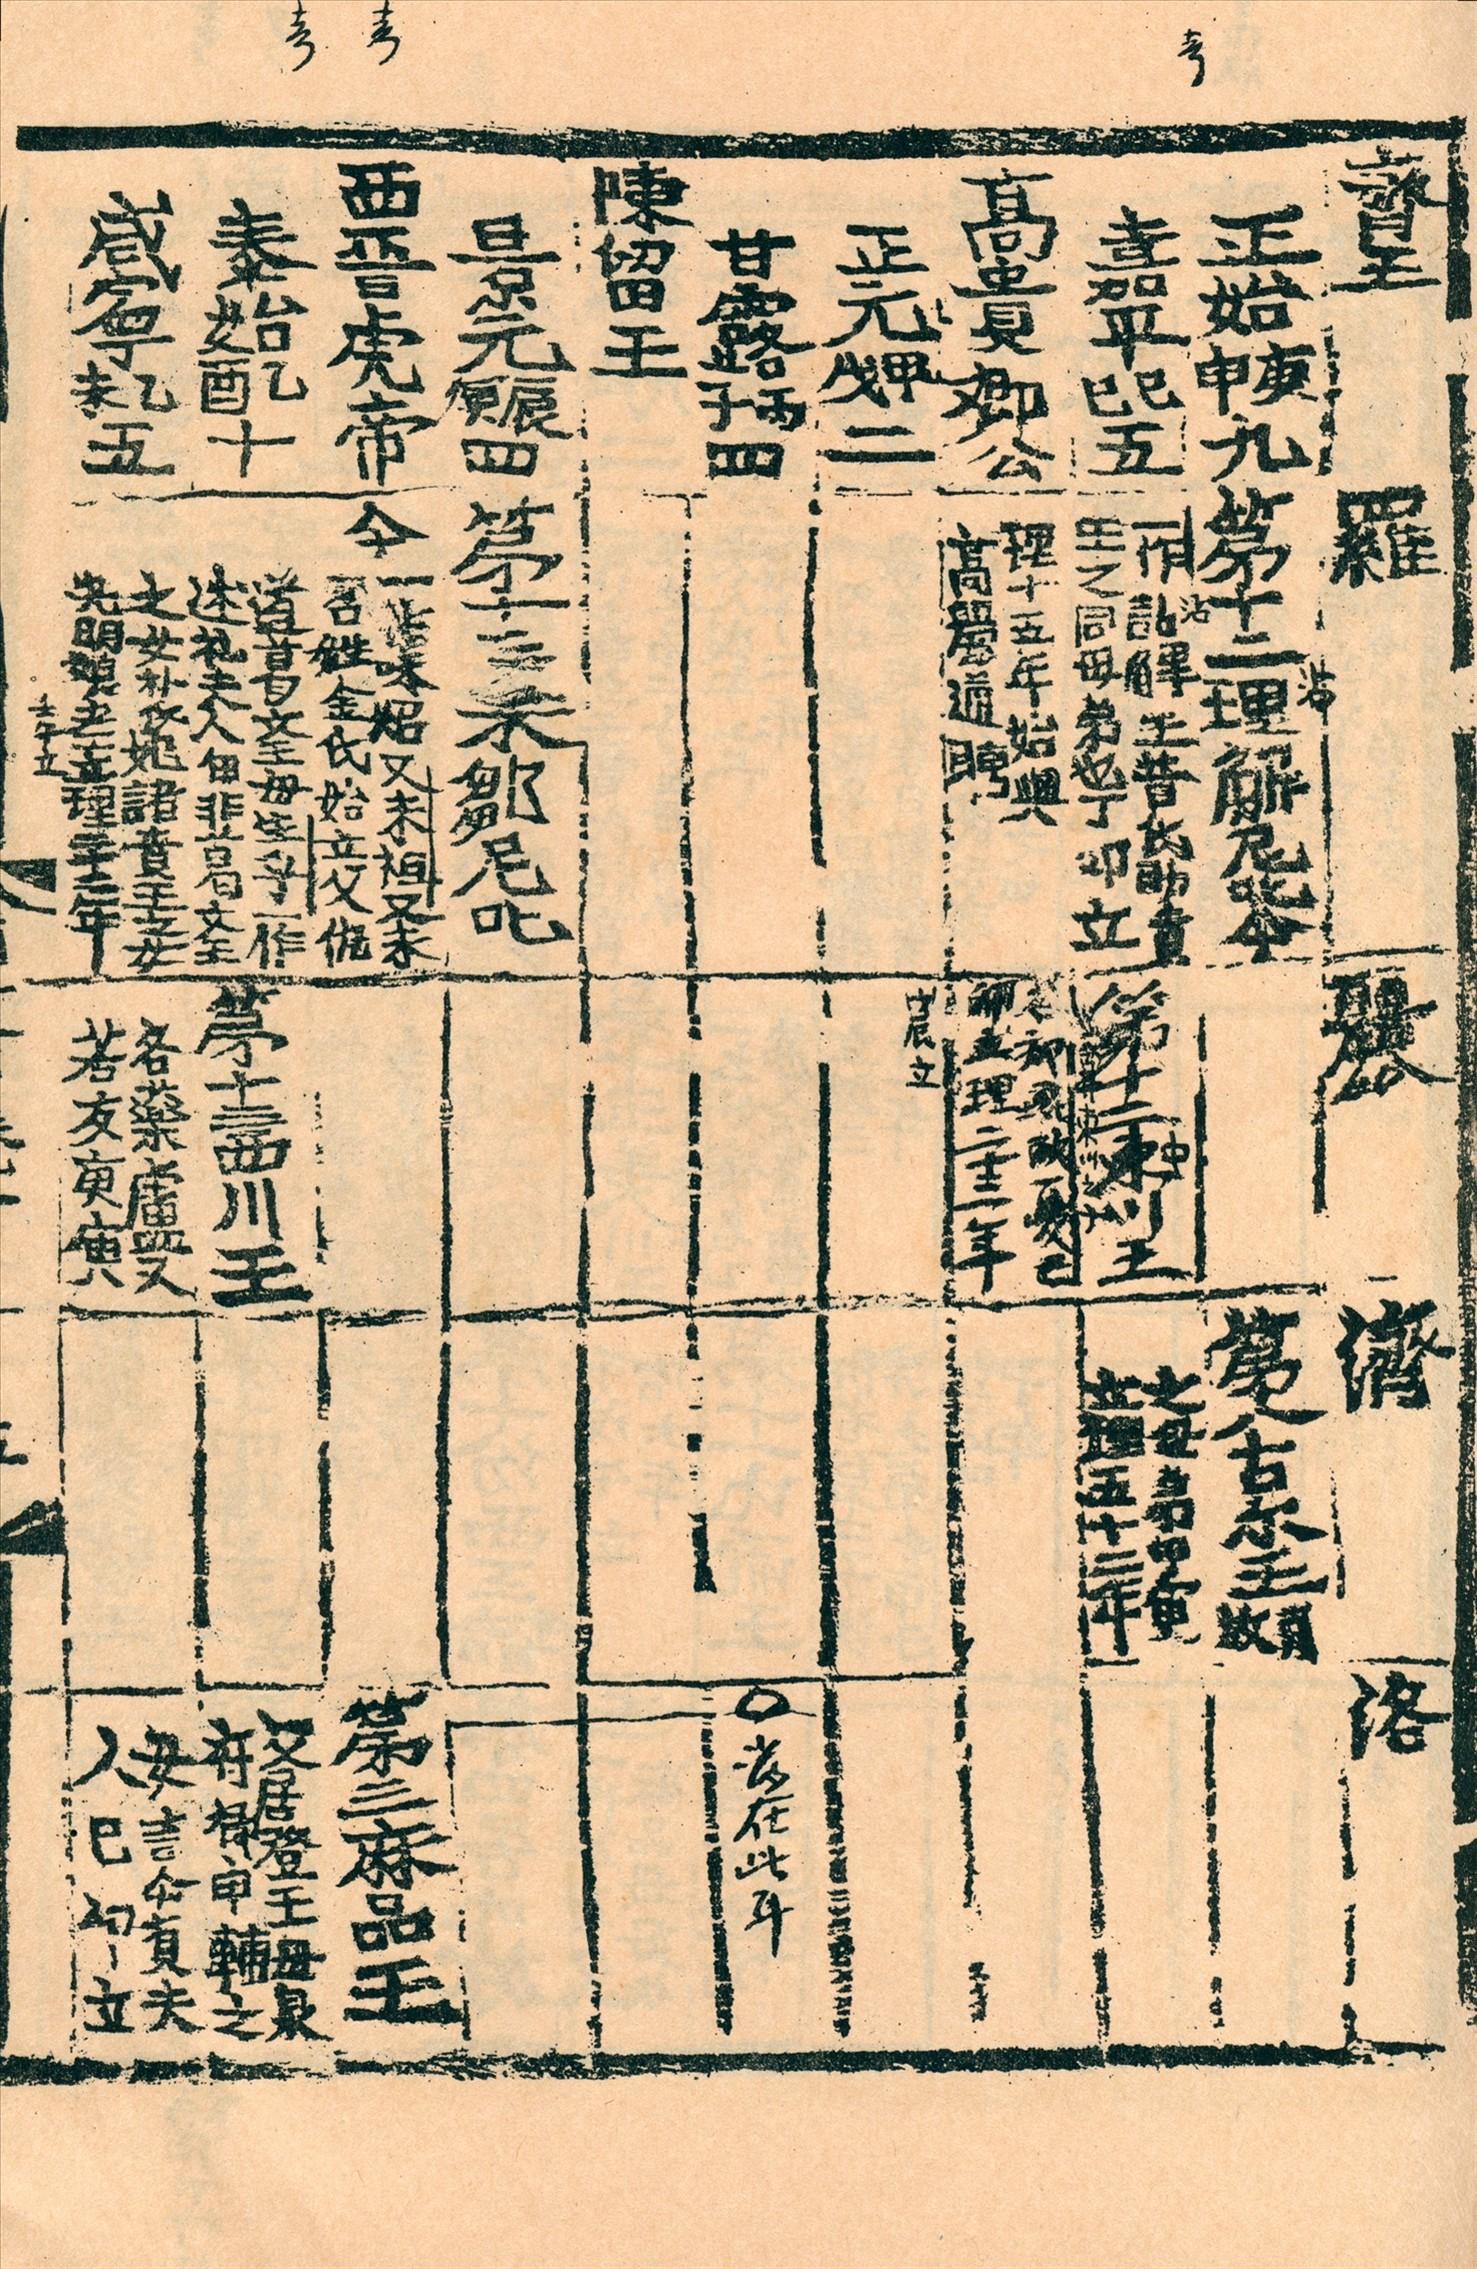 齊王
正始庚申九
嘉平己巳五
高貴鄉公
正元甲戌二
甘露丙子四
陳留王
景元庚辰四
西晉虎帝
泰始乙酉十
咸寧乙未五
羅
第十二理解尼叱今
一作詀解王昔氏助賁
王之同母弟也丁卯立
理十五年始與
高麗通聘
第十三未鄒尼叱
今
一作味炤又未祖又未
召姓金氏始立父仇
道葛文王母生乎一作
述礼夫人伊非葛文王
之女朴氏妃諸賁王之女
光明娘壬午立理二十二年
壬午立
麗
第十二東川王
中
戊辰立
立理二十二年
第十三西川王
名藥盧又
若友庚寅
濟
第八古尔王故肖
之母弟甲寅
立理五十二年
洛
當在此年
第三麻品王
父居登王母泉
府卿申輔之
女吉今貞夫
人己卯立